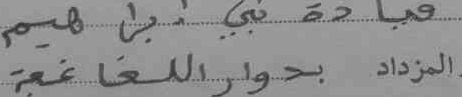 عيادة نبي إبراهيم
المزداد بدوار اللغاغعة